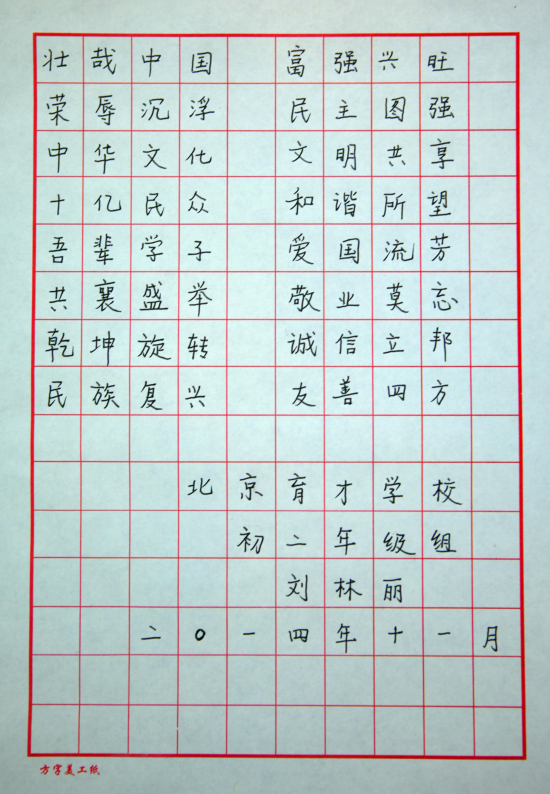 壮哉中国 富强兴旺
荣辱沉浮 民主图强
中华文化 文明共享
十亿民众 和谐所望
吾辈学子 爱国流芳
共襄盛举 敬业莫忘
乾坤旋转 诚信立邦
民族复兴 友善四方
北京育才学校
初二年级组
刘林丽
二0一四年十一月
方字美工纸